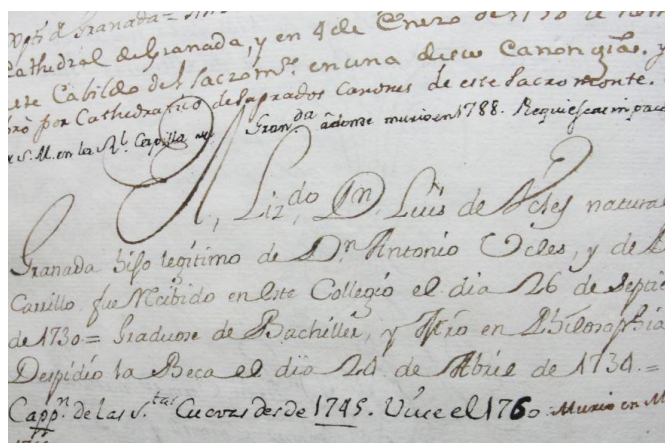 Cathedral de Granada, y en 4 de Enero de
este Cabildo del Sacromte. en una de sus Canongias. y
por Cathedratico de Sagrados Canones de este Sacro monte.
S. M. en la Rl. Capilla de Granda. adonde murio en 1788. Requiescat in pace
Lizdo. Dn. Luis de Ocles natural
Granada hijo legitimo de Dn. Antonio Ocles, y de D
Carrillo fue Recibido en este Collegio el dia 26 de Septie
de 1730 = Graduose de Bachiller, y Mtro en Philosophia
Despidio la Beca el dia 24 de Abril de 1734. =
Cappn. de las Stas Cuevas desde 1745. Vive el 1760. Murio en M